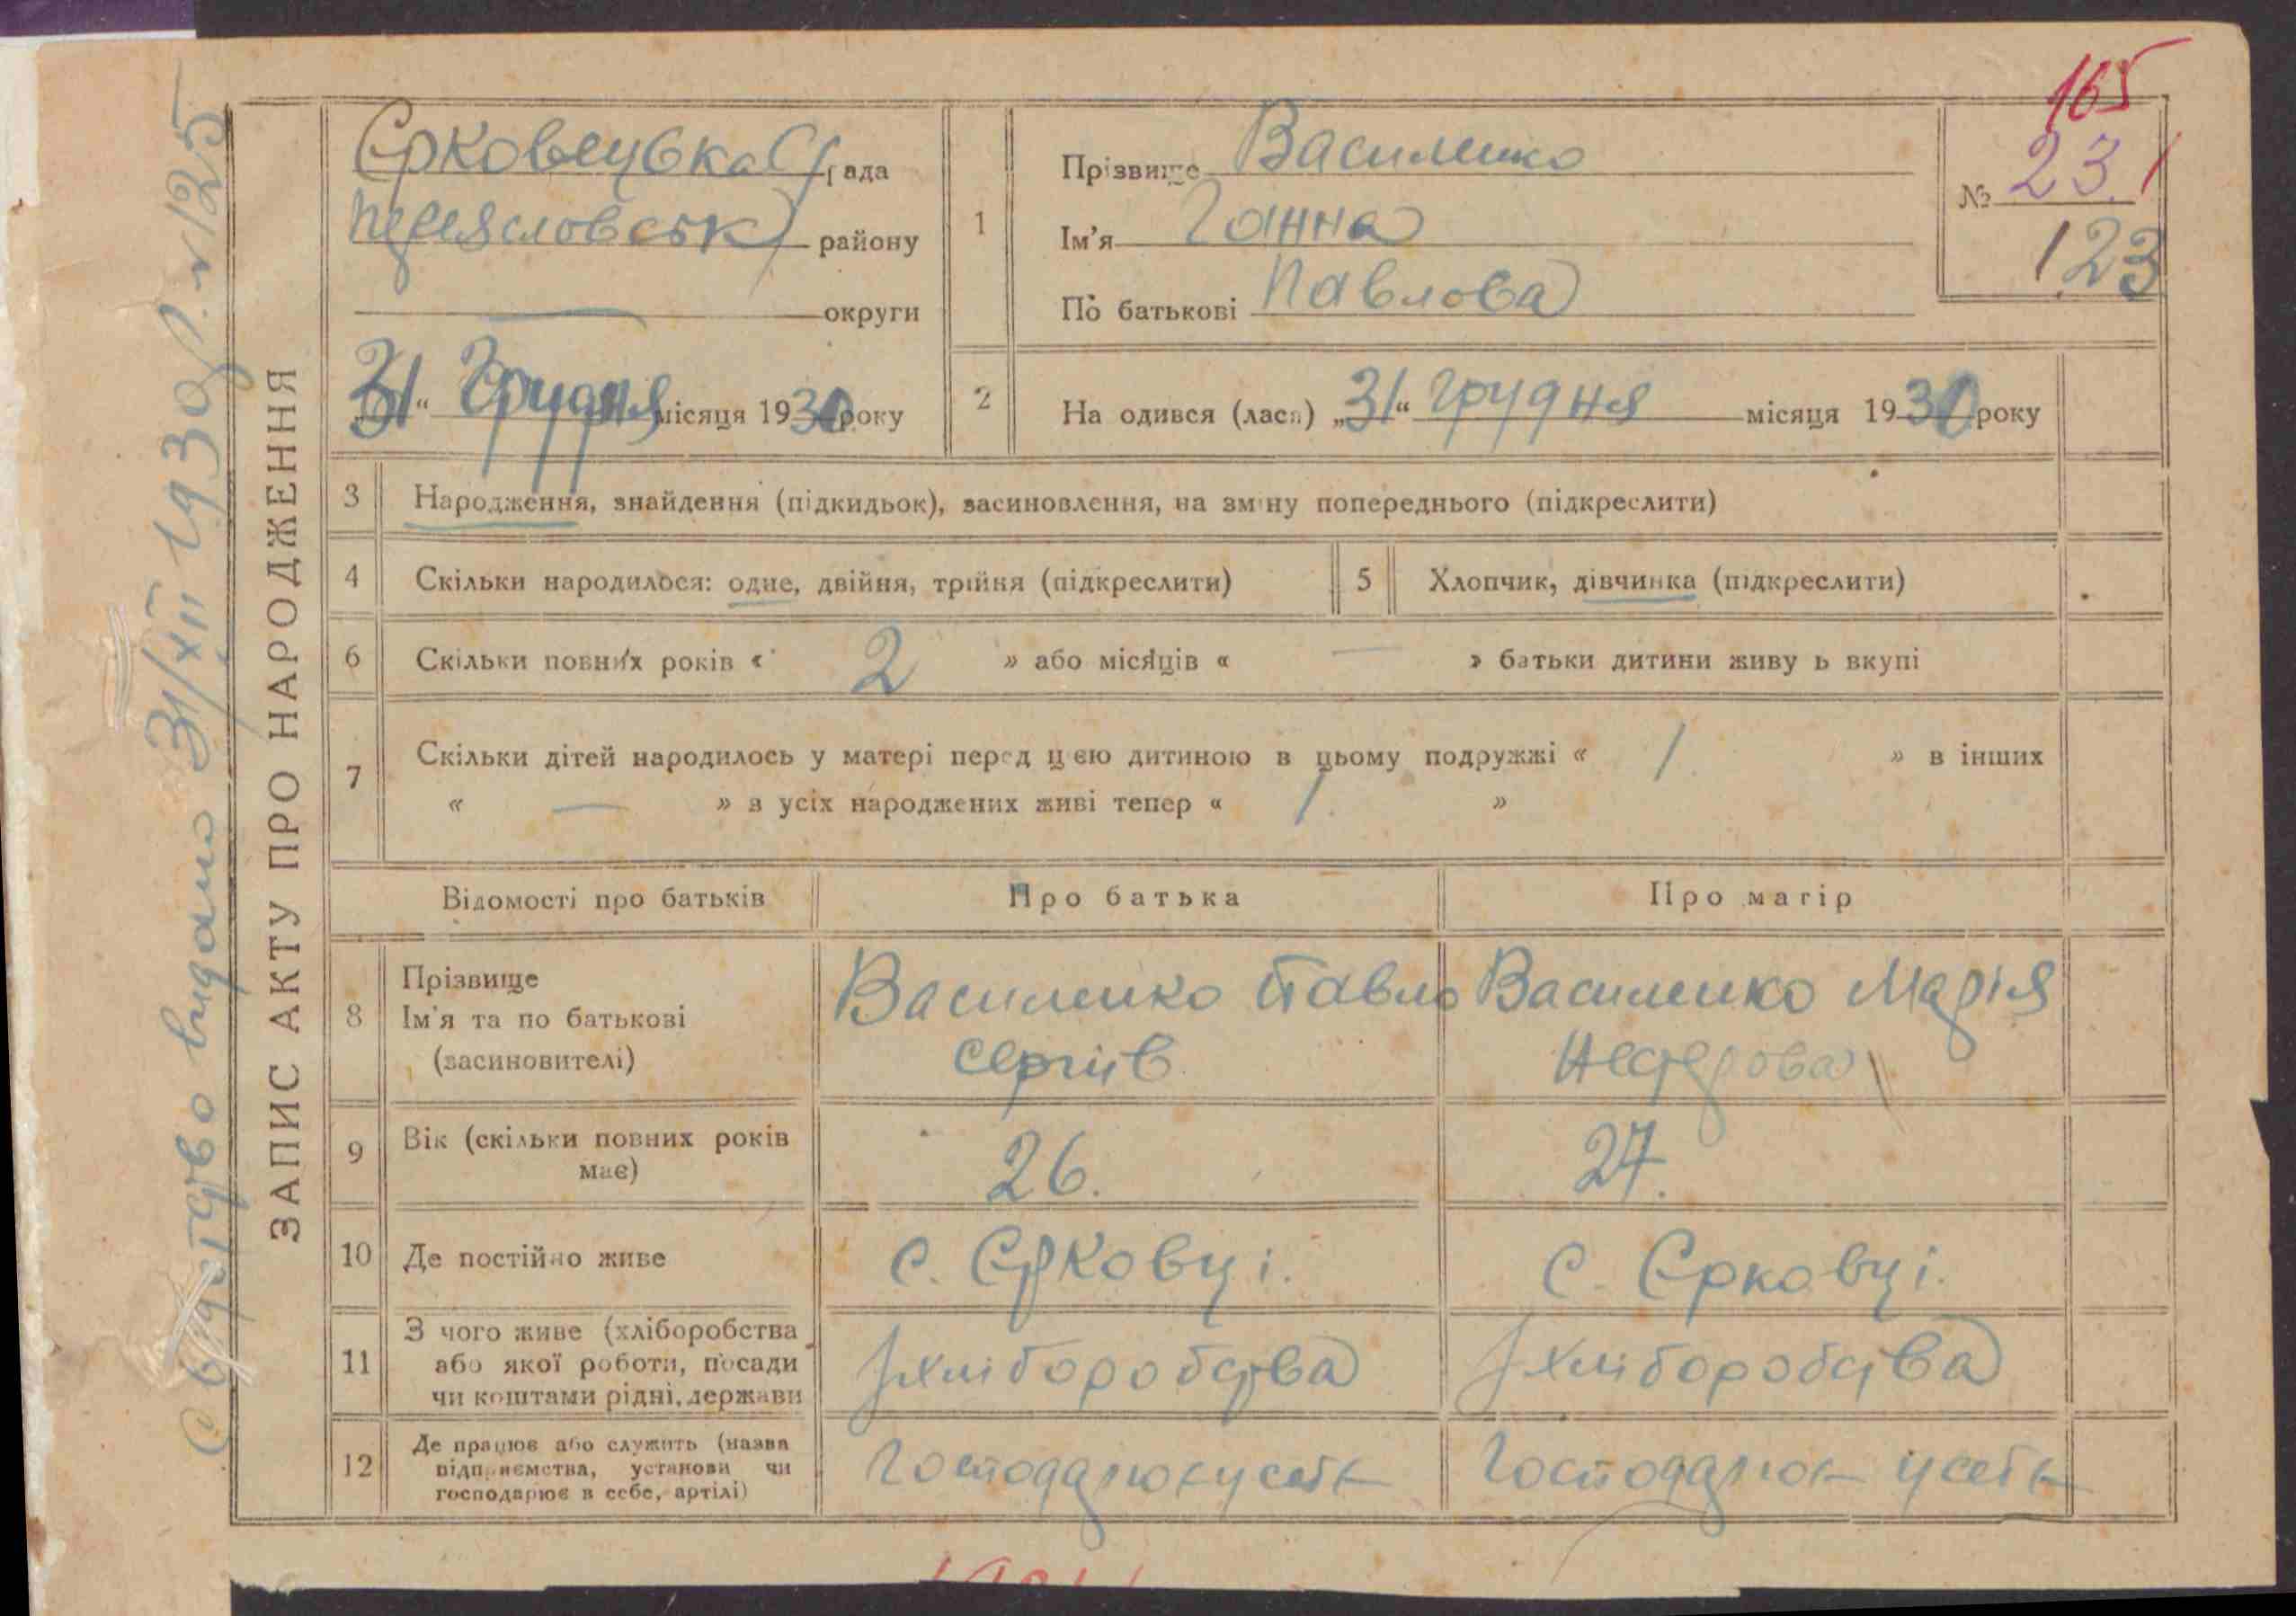 165
Єрковецька с/рада
Переясловськ району
округи
„31“ Грудня місяця 1930 року
1
Прізвище Василенко
Ім'я Ганна
По батькові Павлова
№ 23
123
2
На одився (лась) „31“ грудня місяця 1930 року
Свідоцтво видано 31/XII 1930 р. №125
ЗАПИС АКТУ ПРО НАРОДЖЕННЯ
3 Народження, знайдення (підкидьок), засиновлення, на зміну попереднього (підкреслити)
4 Скільки народилося: одне, двійня, трійня (підкреслити) 5 Хлопчик, дівчинка (підкреслити)
6 Скільки повних років « 2 » або місяців « — » батьки дитини живу ь вкупі
7 Скільки дітей народилось у матері перед цією дитиною в цьому подружжі « 1. » в інших
« — » з усіх народжених живі тепер « 1. »
Відомості про батьків Про батька Про матір
8
Прізвище
Ім'я та по батькові
(засиновителі)
Василенко Павло
Сергіїв
Василенко Марія
Нестерова
9 Вік (скільки повних років
має)
26.
27.
10 Де постійно живе с. Єрковці. с. Єрковці.
11
З чого живе (хліборобства
або якої роботи, посади
чи коштами рідні, держави
з хліборобства
з хліборобства
12
Де працює або служить (назва
підприємства, установи чи
господарює в себе, артілі)